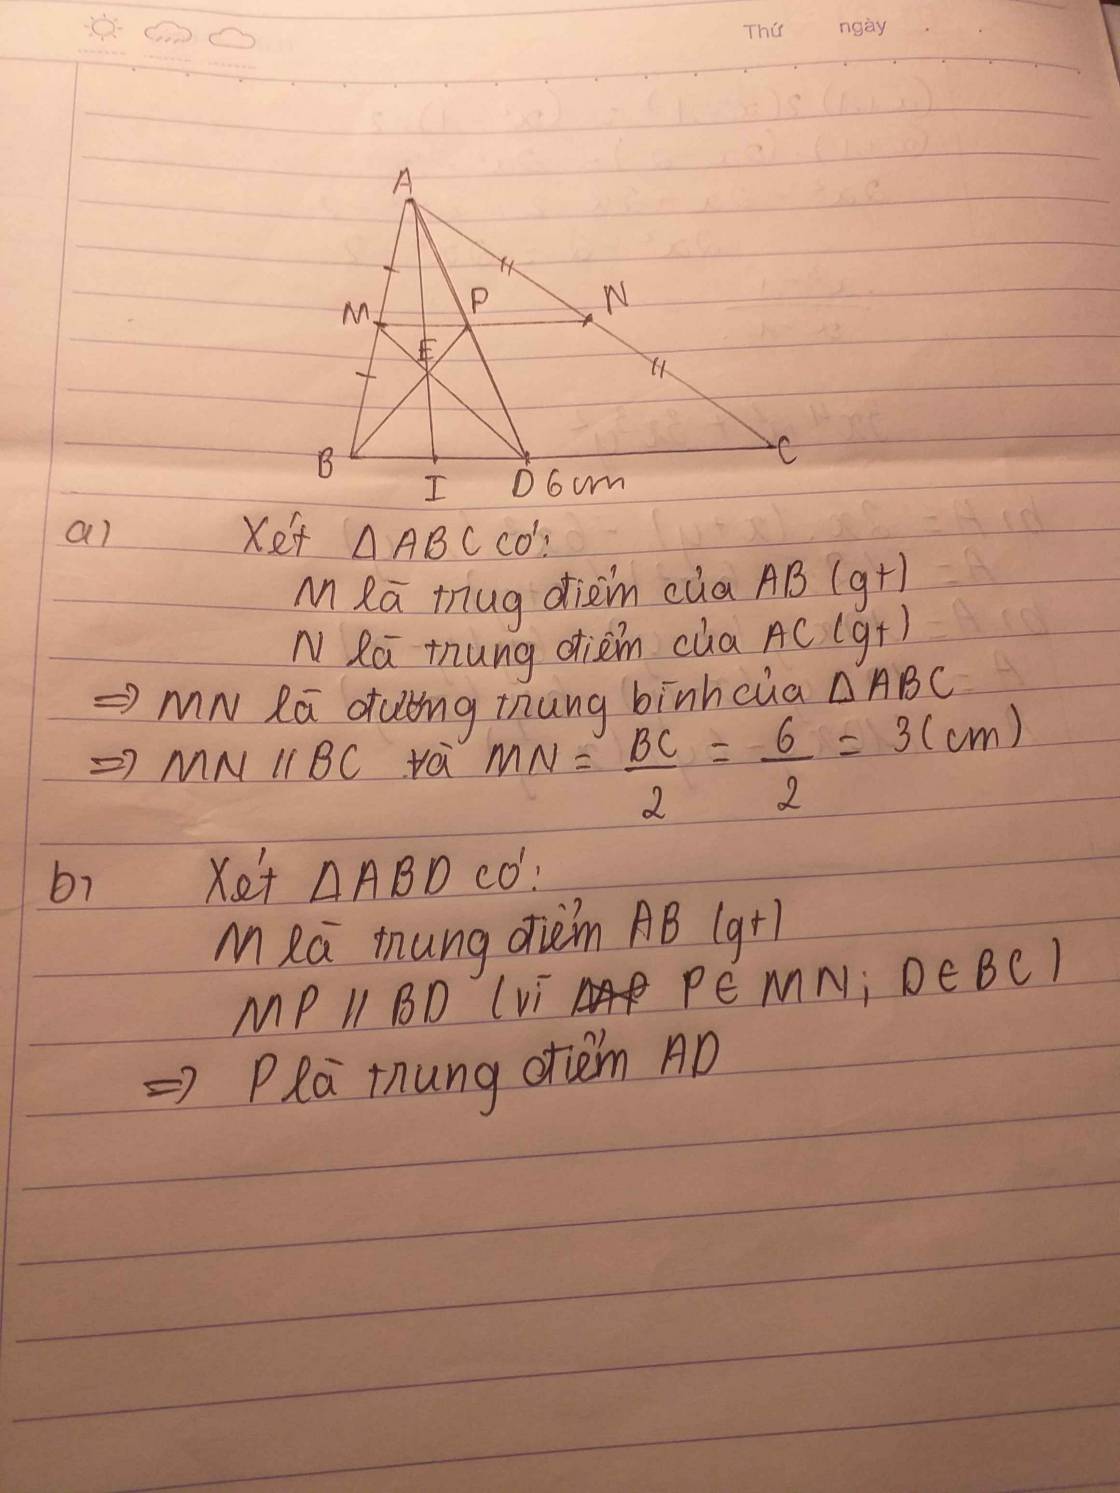 Thứ ngày
A
M P N
E
B I D 6cm C
a) Xét ΔABC có:
M là trug điểm của AB (gt)
N là trung điểm của AC (gt)
=> MN là đường trung bình của ΔABC
=> MN // BC và MN = BC/2 = 6/2 = 3 (cm)
b) Xét ΔABD có:
M là trung điểm AB (gt)
MP // BD (vì P∈ MN; D∈ BC)
=> P là trung điểm AD